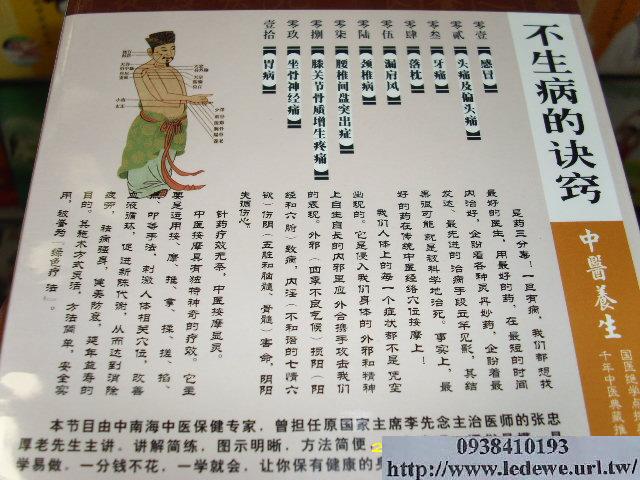 不生病的诀窍
中醫養生
零壹【感冒】
零贰【头痛及偏头痛】
零叁【牙痛】
零肆【落枕】
零伍【漏肩风】
零陆【颈椎病】
零柒【腰椎间盘突出症】
零捌【膝关节骨质增生疼痛】
零玖【坐骨神经痛】
壹拾【胃病】
是药三分毒！一旦有病，我们都想找
最好的医生，用最好的药，在最短的时间
内治好，企盼着各种灵丹妙药，企盼着最
发达、最先进的治病手段立竿见影，其结
果很可能就是被科学地治死。事实上，最
好的药在传统中医经络穴位按摩上！
我们人体上的每一个症状都不是凭空
出现的。它是侵入我们身体的外邪和精神
上自生自长的内邪里应外合携手攻击我们
的表现。外邪（四季不良气候）损阳（阳
经和六腑）致病，内淫（不和谐的七情六
欲）伤阴（五脏和脑髓、骨髓）害命，阴阳
失调伤心。
针药疗效无奈，中医按摩显灵。
中医按摩具有独特神奇的疗效。它主
要是运用按、摩、推、拿、揉、搓、掐、
点、叩等手法，刺激人体相关穴位，改善
血液循环，促进新陈代谢，从而达到消除
疲劳，祛病强身，健美防衰，延年益寿的
目的。其施术方式灵活，方法简单，安全实
用，被誉为“绿色疗法”。
国医绝学
千年中医典藏推
本节目由中南海中医保健专家，曾担任原国家主席李先念主治医师的张忠
厚老先生主讲。讲解简练，图示明晰，方法简便
学易做。一分钱不花，一学就会，让你保有健康的
0938410193
http://www.ledewe.url.tw/